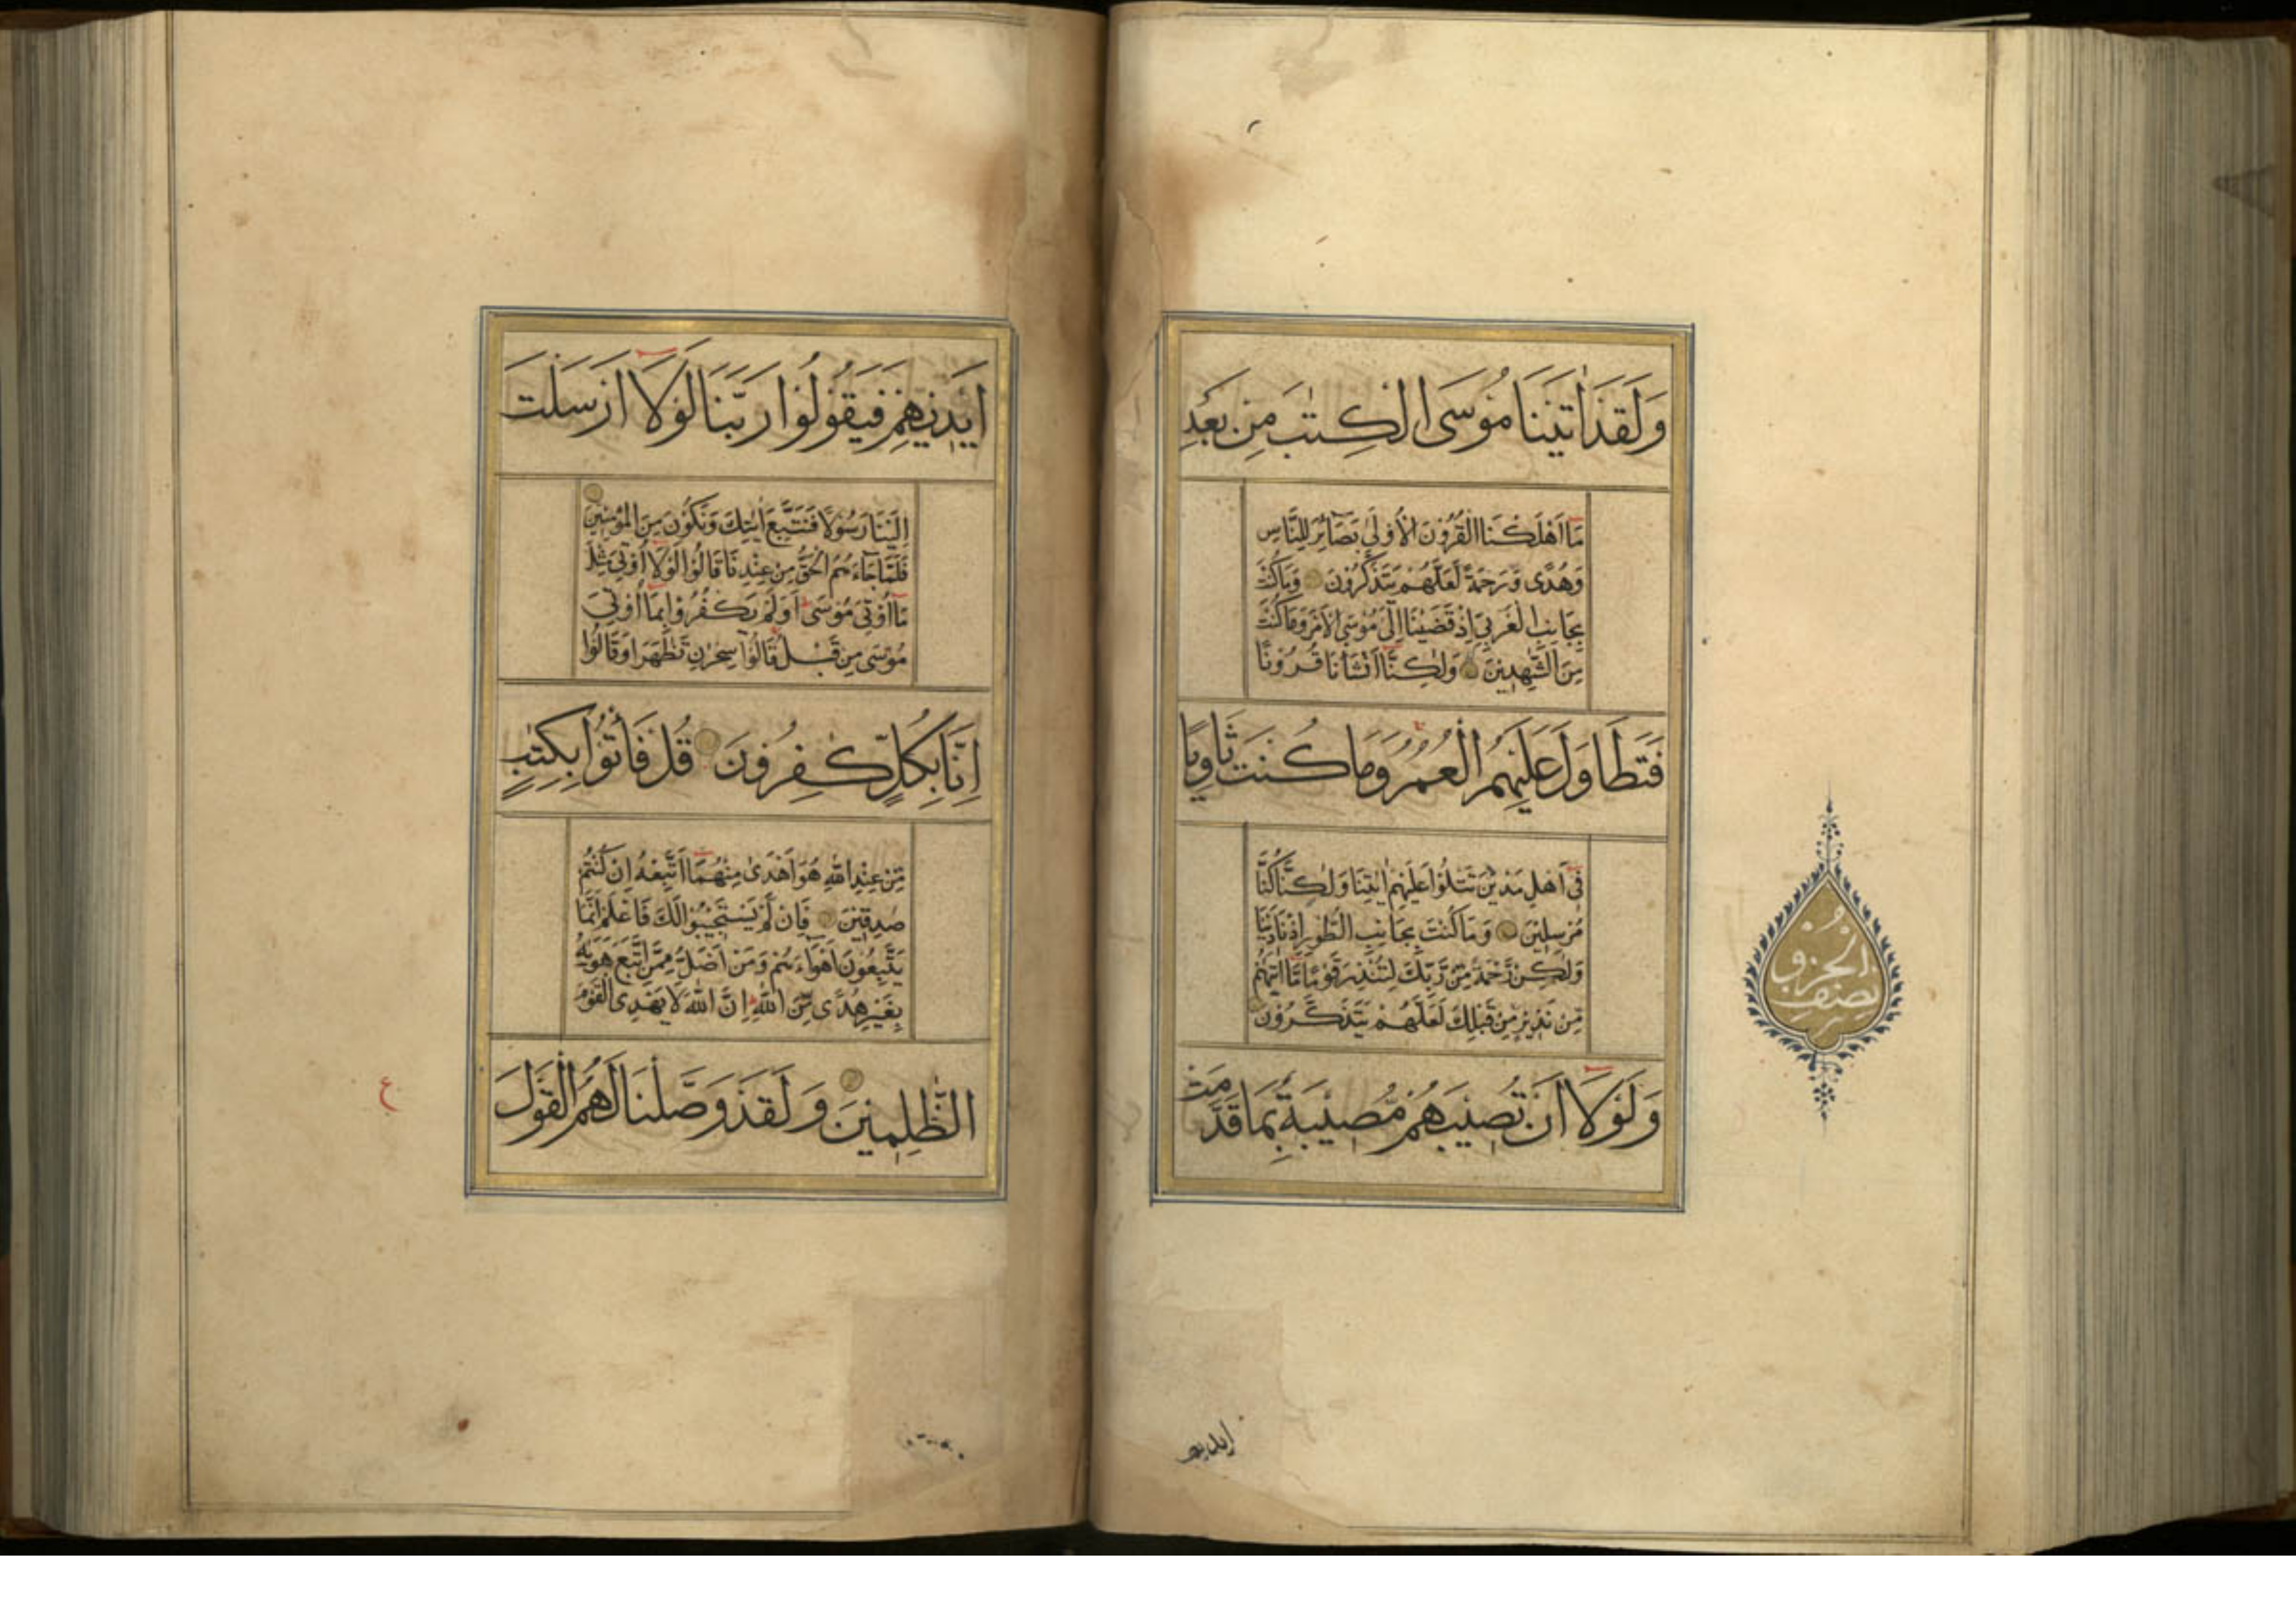 وَلَقَدْ اٰتَيْنَا مُوسَى الْكِتٰبَ مِنْ بَعْدِ
مَا اَهْلَكْنَا الْقُرُوْنَ الْاُوْلٰى بَصَآئِرَ لِلنَّاسِ
وَهُدًى وَرَحْمَةً لَعَلَّهُمْ يَتَذَكَّرُوْنَ وَمَا كُنْتَ
بِجَانِبِ الْغَرْبِيِّ اِذْ قَضَيْنَا اِلٰى مُوْسَى الْاَمْرَ وَمَا كُنْتَ
مِنَ الشّٰهِدِيْنَ وَلٰكِنَّا اَنْشَاْنَا قُرُوْنًا
فَتَطَاوَلَ عَلَيْهِمُ الْعُمُرُ وَمَا كُنْتَ ثَاوِيًا
فِى اَهْلِ مَدْيَنَ تَتْلُوْا عَلَيْهِمْ اٰيٰتِنَا وَلٰكِنَّا كُنَّا
مُرْسِلِيْنَ وَمَا كُنْتَ بِجَانِبِ الطُّوْرِ اِذْ نَادَيْنَا
وَلٰكِنْ رَحْمَةً مِنْ رَبِّكَ لِتُنْذِرَ قَوْمًا مَا اَتٰيهُمْ
مِنْ نَذِيْرٍ مِنْ قَبْلِكَ لَعَلَّهُمْ يَتَذَكَّرُوْنَ
وَلَوْلَا اَنْ تُصِيْبَهُمْ مُصِيْبَةٌ بِمَا قَدَّمَتْ
نصف
الحزب
ايديهم
اَيْدِيْهِمْ فَيَقُوْلُوْا رَبَّنَا لَوْلَا اَرْسَلْتَ
اِلَيْنَا رَسُوْلًا فَنَتَّبِعَ اٰيٰتِكَ وَنَكُوْنَ مِنَ الْمُؤْمِنِيْنَ
فَلَمَّا جَآءَهُمُ الْحَقُّ مِنْ عِنْدِنَا قَالُوْا لَوْلَا اُوْتِىَ مِثْلَ
مَا اُوْتِىَ مُوْسٰى اَوَلَمْ يَكْفُرُوْا بِمَا اُوْتِىَ
مُوْسٰى مِنْ قَبْلُ قَالُوْا سِحْرٰنِ تَظٰهَرَا وَقَالُوْا
اِنَّا بِكُلٍّ كٰفِرُوْنَ قُلْ فَاْتُوْا بِكِتٰبٍ
مِنْ عِنْدِ اللّٰهِ هُوَ اَهْدٰى مِنْهُمَا اَتَّبِعْهُ اِنْ كُنْتُمْ
صٰدِقِيْنَ فَاِنْ لَمْ يَسْتَجِيْبُوْا لَكَ فَاعْلَمْ اَنَّمَا
يَتَّبِعُوْنَ اَهْوَآءَهُمْ وَمَنْ اَضَلُّ مِمَّنِ اتَّبَعَ هَوٰيهُ
بِغَيْرِ هُدًى مِنَ اللّٰهِ اِنَّ اللّٰهَ لَا يَهْدِى الْقَوْمَ
الظّٰلِمِيْنَ وَلَقَدْ وَصَّلْنَا لَهُمُ الْقَوْلَ
ع